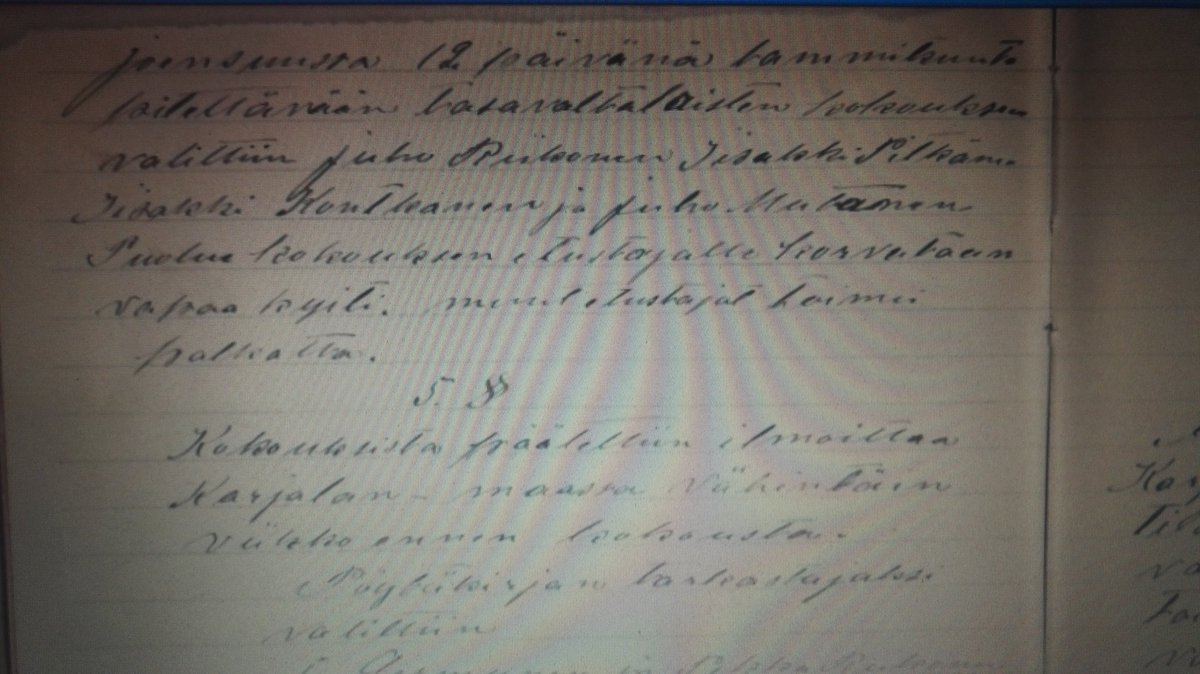 Joensuussa 12 päivänä tammikuuta
pitettävään tasavaltalaisten kokouksen
valittiin Juho Riikonen Iisakki Pitkäne
Iisakki Kontkanen ja Juho Mutanen
Puolue kokouksen etustajalle korvataan
vapaa kyiti. muut etustajat toimii
palkatta.
5. §
Kokouksista päätettiin ilmoittaa
Karjalan-maassa vähintäin
viikko ennen kokousta.
Pöytäkirjan tarkastajaksi
valittiin
ja Pekka
Kar